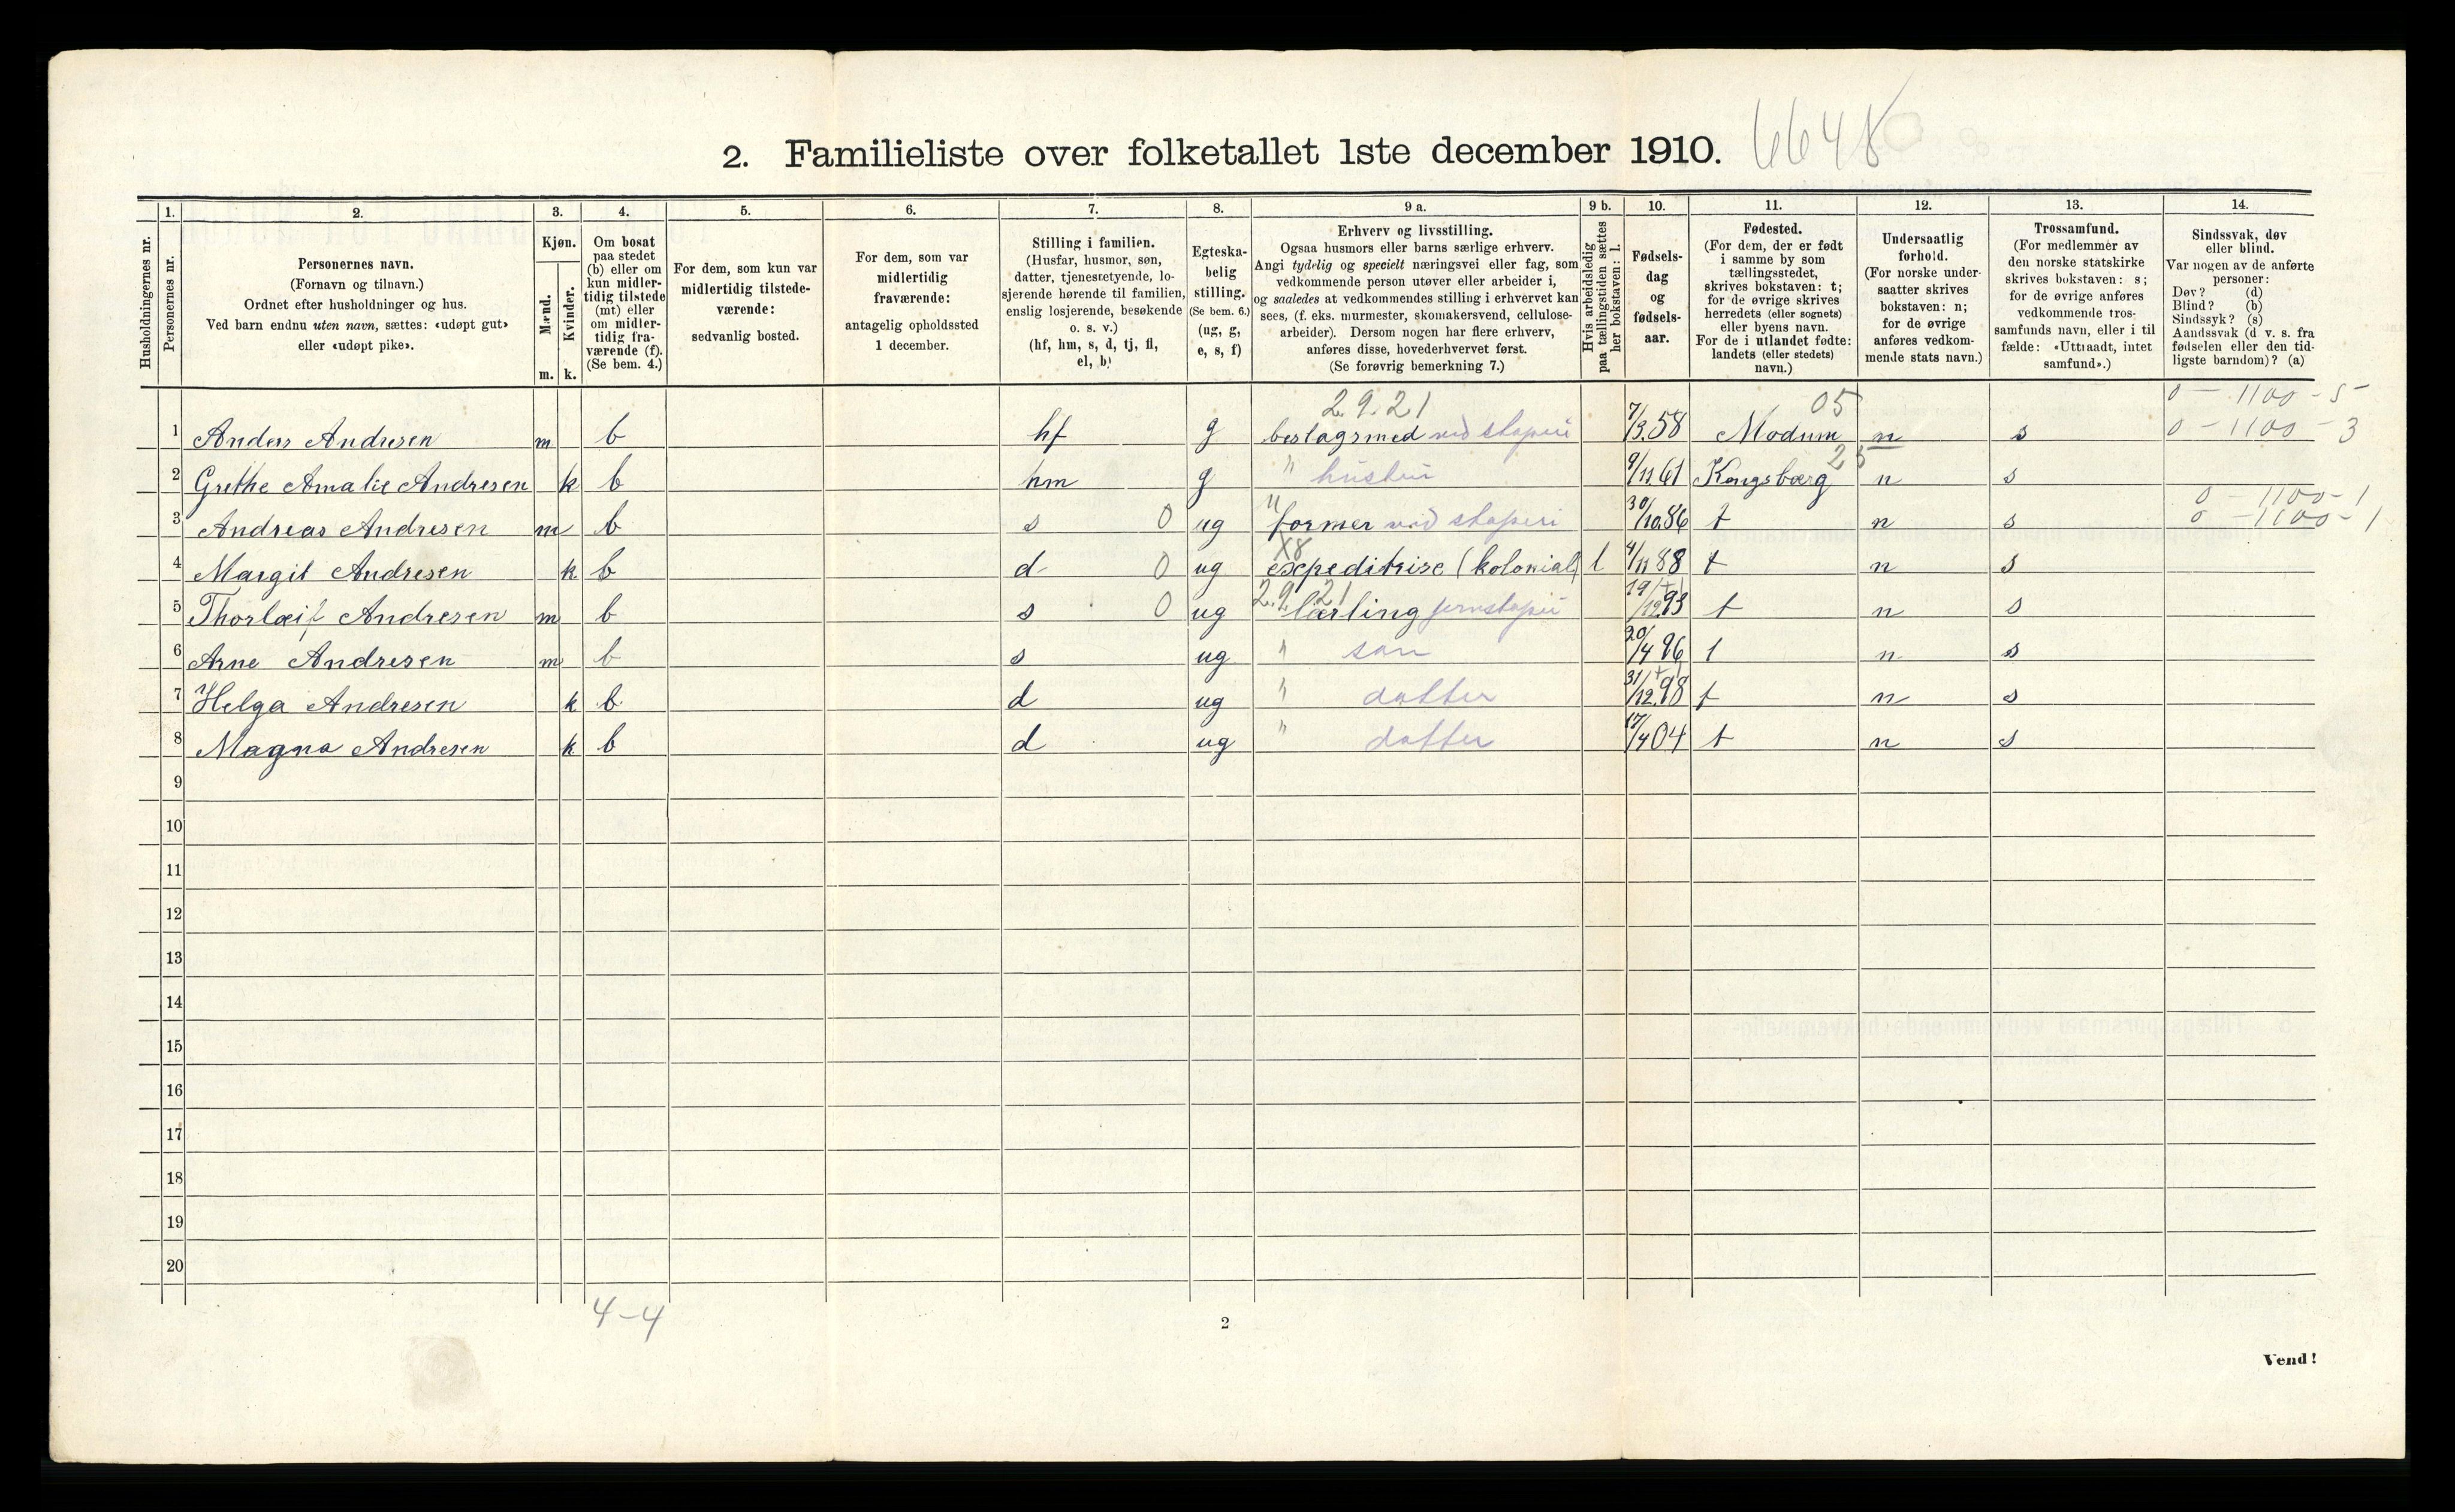 2. Familieliste over folketallet 1ste december 1910. 6648
Husholdningernes nr.
1. Personernes nr.
2. Personernes navn.
(Fornavn og tilnavn.)
Ordnet efter husholdninger og hus.
Ved barn endnu uten navn, sættes: «udøpt gut»
eller «udøpt pike».
3. Kjøn.
Mænd. m.
Kvinder. k.
4. Om bosat
paa stedet
(b) eller om
kun midler-
tidig tilstede
(mt) eller
om midler-
tidig fra-
værende (f).
(Se bem. 4.)
5. For dem, som kun var
midlertidig tilstede-
værende:
sedvanlig bosted.
6. For dem, som var
midlertidig
fraværende:
antagelig opholdssted
1 december.
7. Stilling i familien.
(Husfar, husmor, søn,
datter, tjenestetyende, lo-
sjerende hørende til familien,
enslig losjerende, besøkende
o. s. v.)
(hf, hm, s, d, tj, fl,
el, b)
8. Egteska-
belig
stilling.
(Se bem. 6.)
(ug, g,
e, s, f)
9 a. Erhverv og livsstilling.
Ogsaa husmors eller barns særlige erhverv.
Angi tydelig og specielt næringsvei eller fag, som
vedkommende person utøver eller arbeider i,
og saaledes at vedkommendes stilling i erhvervet kan
sees, (f. eks. murmester, skomakersvend, cellulose-
arbeider). Dersom nogen har flere erhverv,
anføres disse, hovederhvervet først.
(Se forøvrig bemerkning 7.)
9 b. Hvis arbeidsledig
paa tællingstiden sættes
her bokstaven: l.
10. Fødsels-
dag
og
fødsels-
aar.
11. Fødested.
(For dem, der er født
i samme by som
tællingsstedet,
skrives bokstaven: t;
for de øvrige skrives
herredets (eller sognets)
eller byens navn.
For de i utlandet fødte:
landets (eller stedets)
navn.)
12. Undersaatlig
forhold.
(For norske under-
saatter skrives
bokstaven: n;
for de øvrige
anføres vedkom-
mende stats navn.)
13. Trossamfund.
(For medlemmer av
den norske statskirke
skrives bokstaven: s;
for de øvrige anføres
vedkommende tros-
samfunds navn, eller i til
fælde: «Uttraadt, intet
samfund».)
14. Sindssvak, døv
eller blind.
Var nogen av de anførte
personer:
Døv? (d)
Blind? (b)
Sindssyk? (s)
Aandssvak (d v. s. fra
fødselen eller den tid-
ligste barndom)? (a)
2.9.21 05 0 - 1100 - 5
1 Anders Andresen m b hf g beslagsmed ved støperi 7/3.58 Modum n s 0 - 1100 - 3
25
2 Grethe Amalie Andresen k b hm g " hustru 9/11.61 Kongsbærg n s
0 - 1100 - 1
3 Andreas Andresen m b s 0 ug former ved støperi 30/10.86 t n s 0 - 1100 - 1
X8
4 Margit Andresen k b d 0 ug expeditrise (kolonial) l 4/11 88 t n s
2.9.21
5 Thorleif Andresen m b s 0 ug lærling jernstøperi 19/12.93 t n s
6 Arne Andresen m b s ug " søn 20/4 96 t n s
7 Helga Andresen k b d ug " datter 31/12.98 t n s
8 Magna Andresen k b d ug " datter 17/4 04 t n s
9
10
11
12
13
14
15
16
17
18
19
20
4-4
2
Vend!